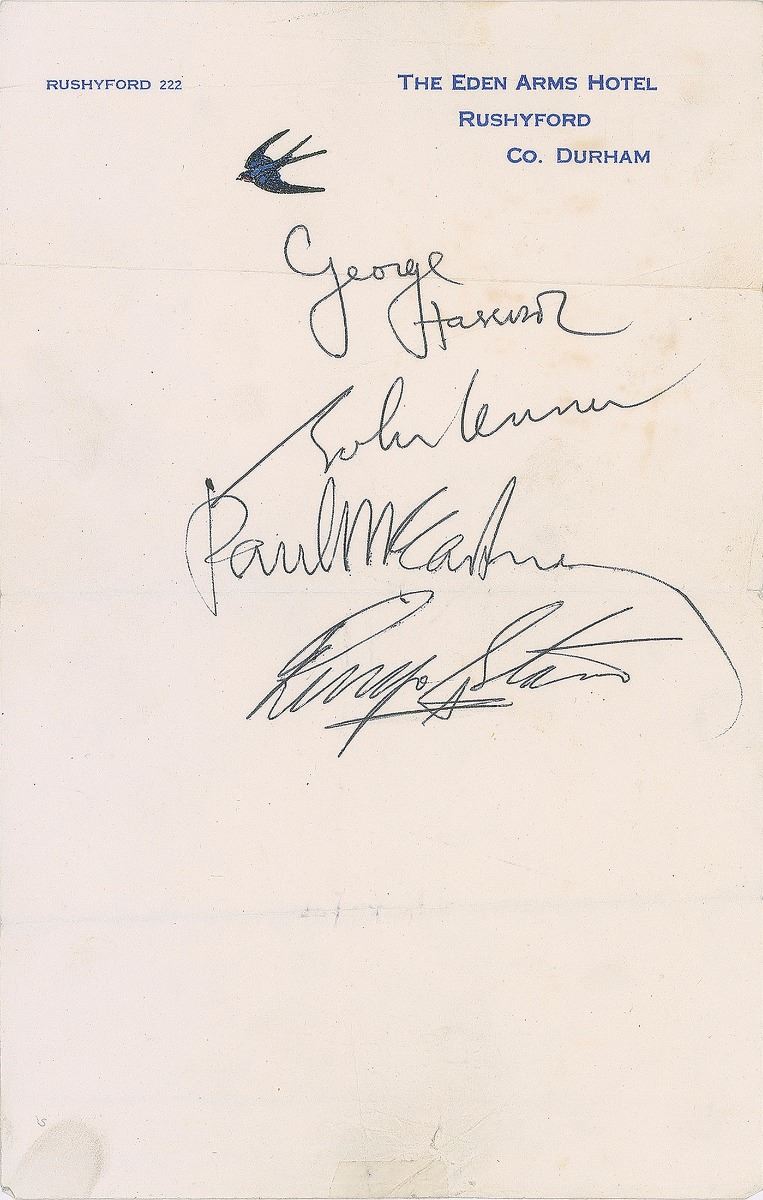 RUSHYFORD 222
THE EDEN ARMS HOTEL
RUSHYFORD
CO. DURHAM
George
Harrison
John Lennon
Paul McCartney
Ringo Starr